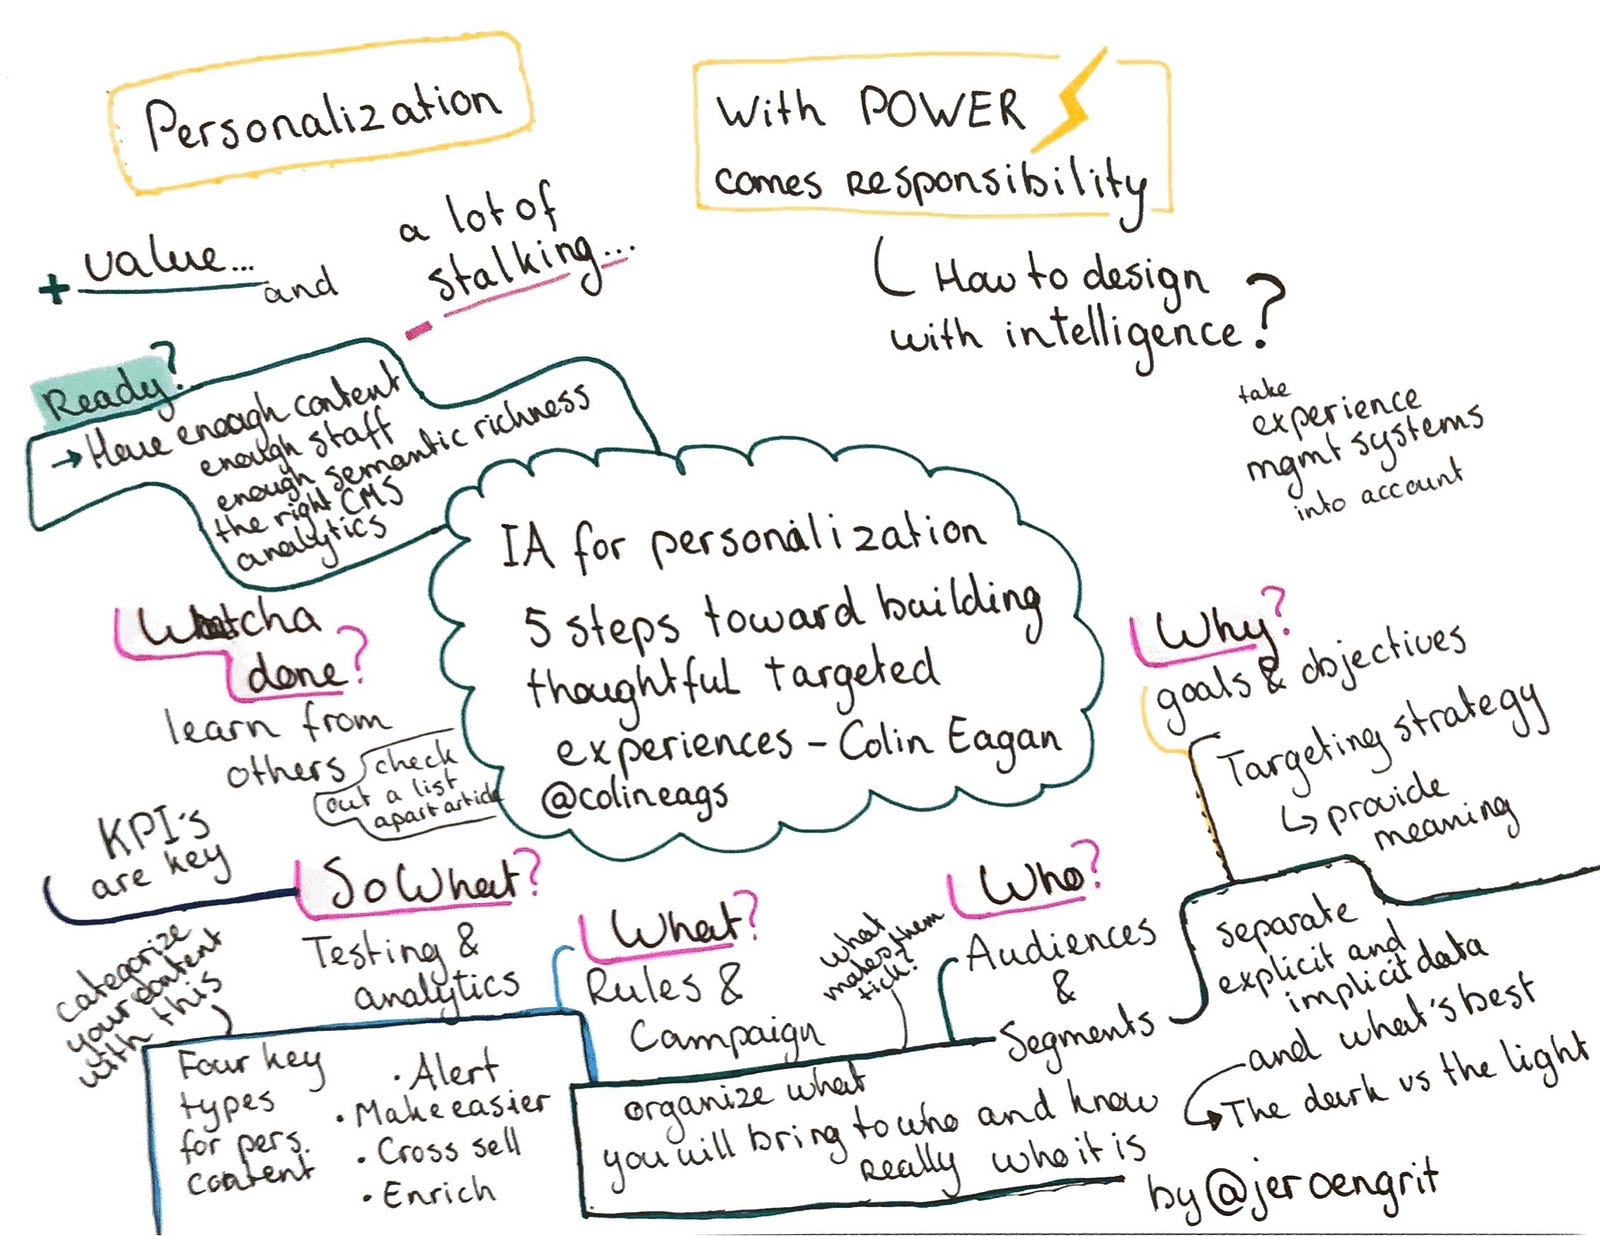 Personalization
With POWER
comes responsibility
+ value... and
a lot of
stalking...
-
How to design
with intelligence?
take
experience
mgmt systems
into account
Ready?
→ Have enough content
enough staff
enough semantic richness
the right CMS
analytics
IA for personalization
5 steps toward building
thoughtful targeted
experiences - Colin Eagan
@colineags
Why?
goals & objectives
Targeting strategy
↳ provide
meaning
Who?
Audiences
&
Segments
separate
explicit and
implicit data
and what's best
The dark vs the light
what
makes them
tick?
organize what
you will bring to who and know
really who it is
What?
Rules &
Campaign
Four key
types
for pers.
content
• Alert
• Make easier
• Cross sell
• Enrich
categorize
your content
with this
So What?
Testing &
analytics
KPI's
are key
Watcha
done?
learn from
others
check
out a list
apart article
by @jeroengrit